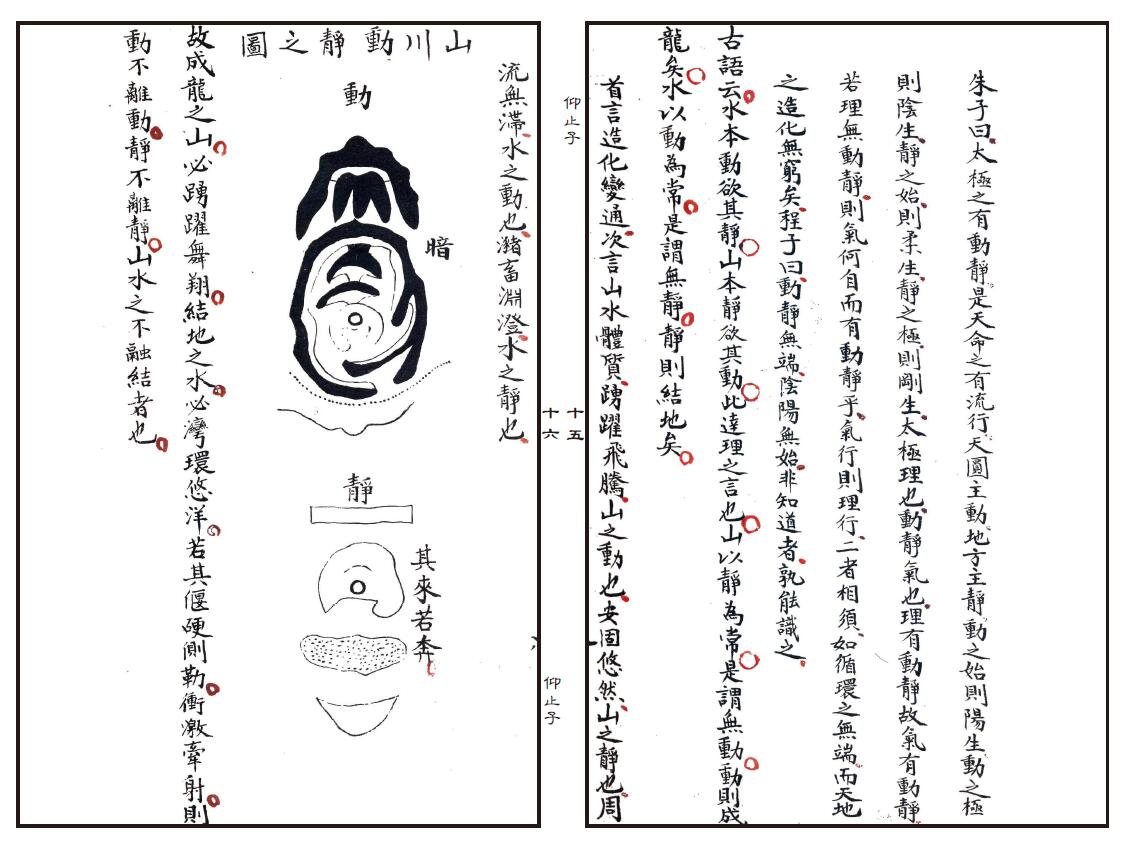 朱子曰太極之有動靜是天命之有流行天圓主動地方主靜動之始則陽生動之極
則陰生靜之始則柔生靜之極則剛生太極理也動靜氣也理有動靜故氣有動靜
若理無動靜則氣何自而有動靜乎氣行則理行二者相須如循環之無端而天地
之造化無窮矣程子曰動靜無端陰陽無始非知道者孰能識之
古語云水本動欲其靜山本靜欲其動此達理之言也山以靜為常是謂無動動則成
龍矣水以動為常是謂無靜靜則結地矣
首言造化變通次言山水體質踴躍飛騰山之動也安固悠然山之靜也周
仰止子
十五
十六
仰止子
流無滯水之動也瀦畜淵澄水之靜也
山川動靜之圖
動
暗
靜
其來若奔
故成龍之山必踴躍舞翔結地之水必灣環悠洋若其偃硬側勒衝激牽射則
動不離動靜不離靜山水之不融結者也